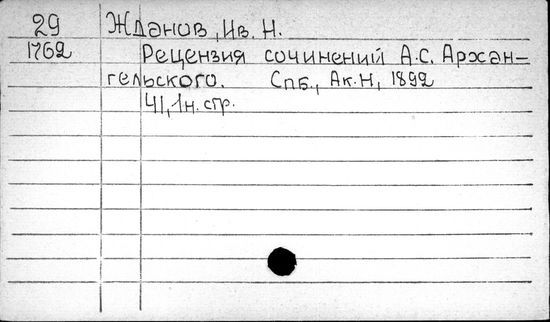 29 Жданов, Ив. Н.
1762 Рецензия сочинений А.С. Архан-
гельского. Спб., Ак.Н, 1892
41, 1н. стр.